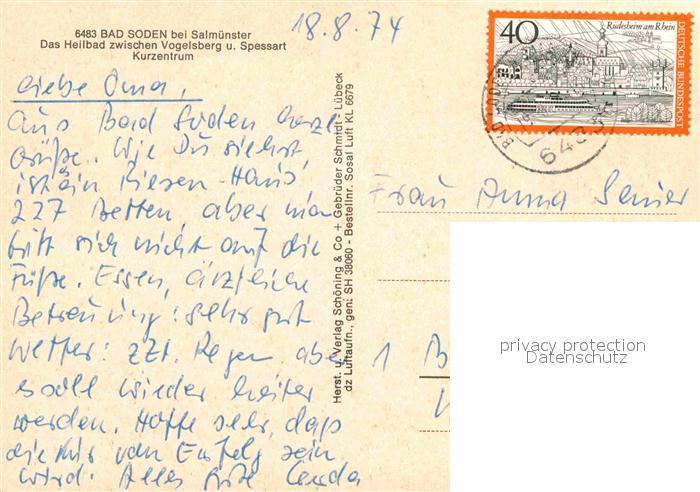 6483 BAD SODEN bei Salmünster
Das Heilbad zwischen Vogelsberg u. Spessart
Kurzentrum
18.8.74
Liebe Oma,
aus Bad Soden herzl.
Grüße. Wie Du siehst,
ist es ein Riesen-Haus,
227 Betten aber man
tritt sich nicht auf die
Füße. Essen, ärztliche
Betreuung: sehr gut
Wetter: zzt. Regen, aber
es soll wieder heiter
werden. Hoffe sehr, dass
die Kur von Erfolg sein
wird. Alles Gute
Herst. u. Verlag Schöning & Co + Gebrüder Schmidt · Lübeck
dz Luftaufn., gen: SH 38060 - Bestellnr. Sosal Luft KL 6679
40
Rüdesheim am Rhein
DEUTSCHE BUNDESPOST
6483
Frau Anna
1 B
privacy protection
Datenschutz